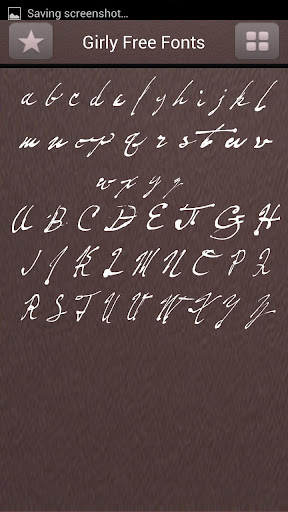 Saving screenshot...
Girly Free Fonts
a b c d e f g h i j k l
m n o p q r s t u v
w x y z
A B C D E F G H
I J K L M N O P Q
R S T U V W X Y Z